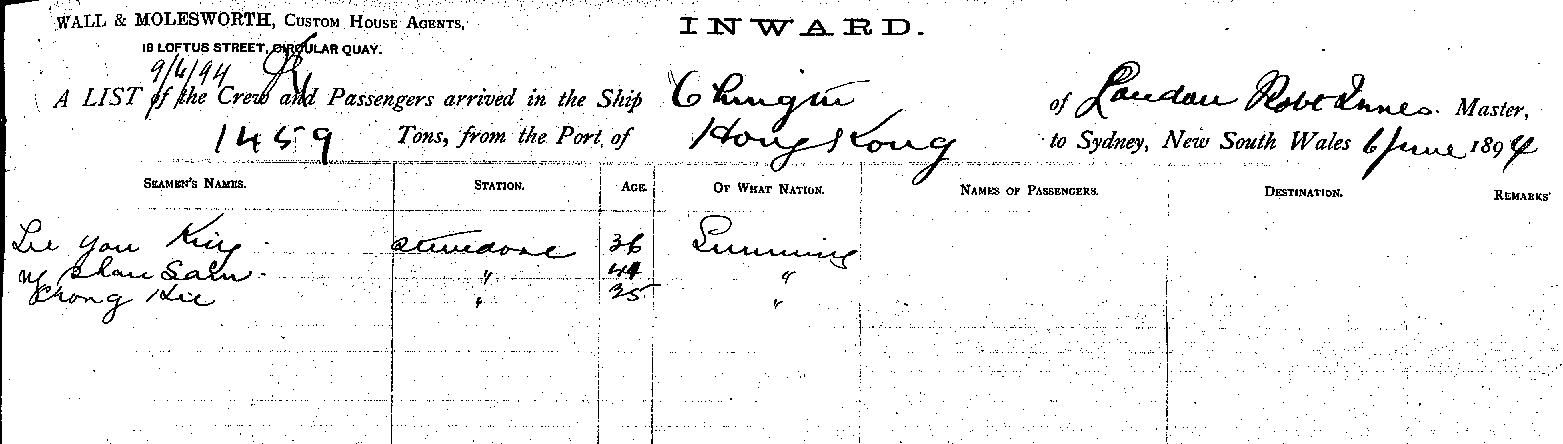 WALL & MOLESWORTH, CUSTOM HOUSE AGENTS,
18 LOFTUS STREET, CIRCULAR QUAY.
INWARD.
9/6/94
A LIST of the Crew and Passengers arrived in the Ship Chingtu of London Robt Innes. Master,
1459 Tons, from the Port of Hong Kong to Sydney, New South Wales 6 June 1894
SEAMEN'S NAMES. STATION. AGE. OF WHAT NATION. NAMES OF PASSENGERS. DESTINATION. REMARKS
Lee You King stevedore 36 Sunning
Ng Shau Sam " 44 "
Chong Kee " 35 "